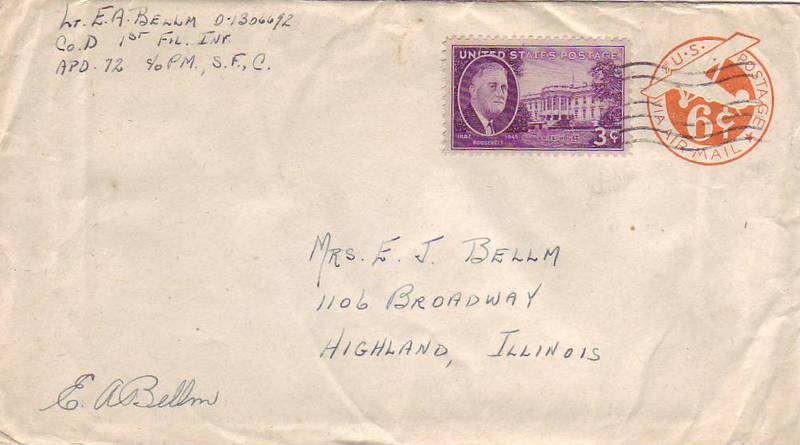 Lt. E. A. Bellm O-1306692
Co. D 1st Fil. Inf.
APO. 72 c/o PM., S.F., C.
UNITED STATES POSTAGE
1882 1945
ROOSEVELT
3¢
U.S. POSTAGE
6¢
VIA AIR MAIL
Mrs. E. J. Bellm
1106 Broadway
Highland, Illinois
E. A Bellm